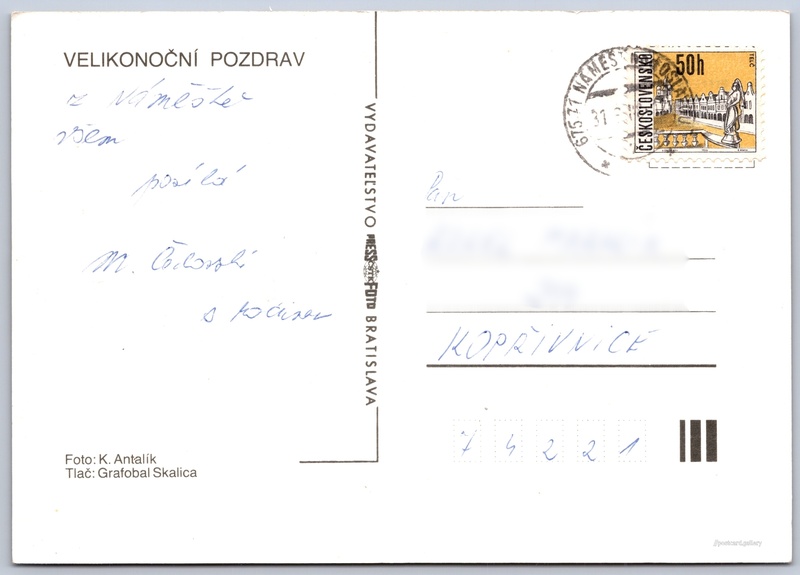 VELIKONOČNÍ POZDRAV
z Náměště
všem
posílá
M.
s rodinou
Foto: K. Antalík
Tlač: Grafobal Skalica
VYDAVATEĽSTVO PRESSFOTO BRATISLAVA
675 71 NÁMĚŠŤ
31
ČESKOSLOVENSKO
50h
TELČ
Pan
KOPŘIVNICE
7 4 2 2 1
//postcard.gallery